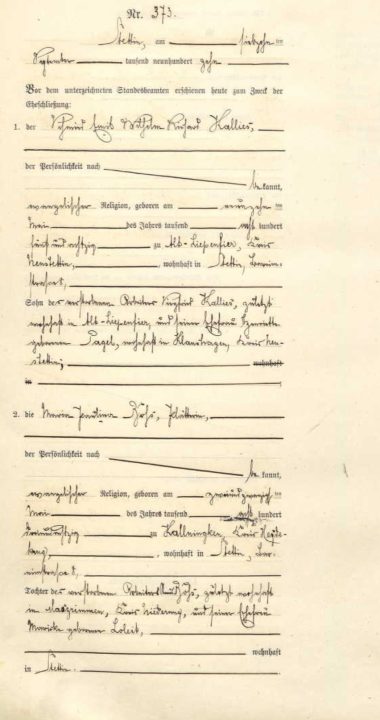 Nr. 373.
Stettin, am siebzehn ten
September tausend neunhundert zehn
Vor dem unterzeichneten Standesbeamten erschienen heute zum Zweck der
Eheschließung:
1. der Emil Wilhelm Richard Kallies,
der Persönlichkeit nach
be kannt,
evangelischer Religion, geboren am neunzehn ten
Mai des Jahres tausend acht hundert
fünfundachtzig zu Alt-Liepenfier, Kreis
Neustettin, wohnhaft in Stettin,
Sohn des verstorbenen Arbeiters Kallies, zuletzt
wohnhaft in Alt-Liepenfier, und seiner Ehefrau Henriette
geborenen Pagel, wohnhaft in Klaushagen, Kreis Neu-
stettin; wohnhaft
in
2. die Maria Paulina
der Persönlichkeit nach
be kannt,
evangelischer Religion, geboren am zweiundzwanzig ten
Mai des Jahres tausend acht hundert
zu Kallningken, Kreis Heyde-
krug, wohnhaft in Stettin,
Tochter des verstorbenen Arbeiters zuletzt wohnhaft
in Kreis Niederung, und seiner Ehefrau
geborenen Loleit,
wohnhaft
in Stettin.